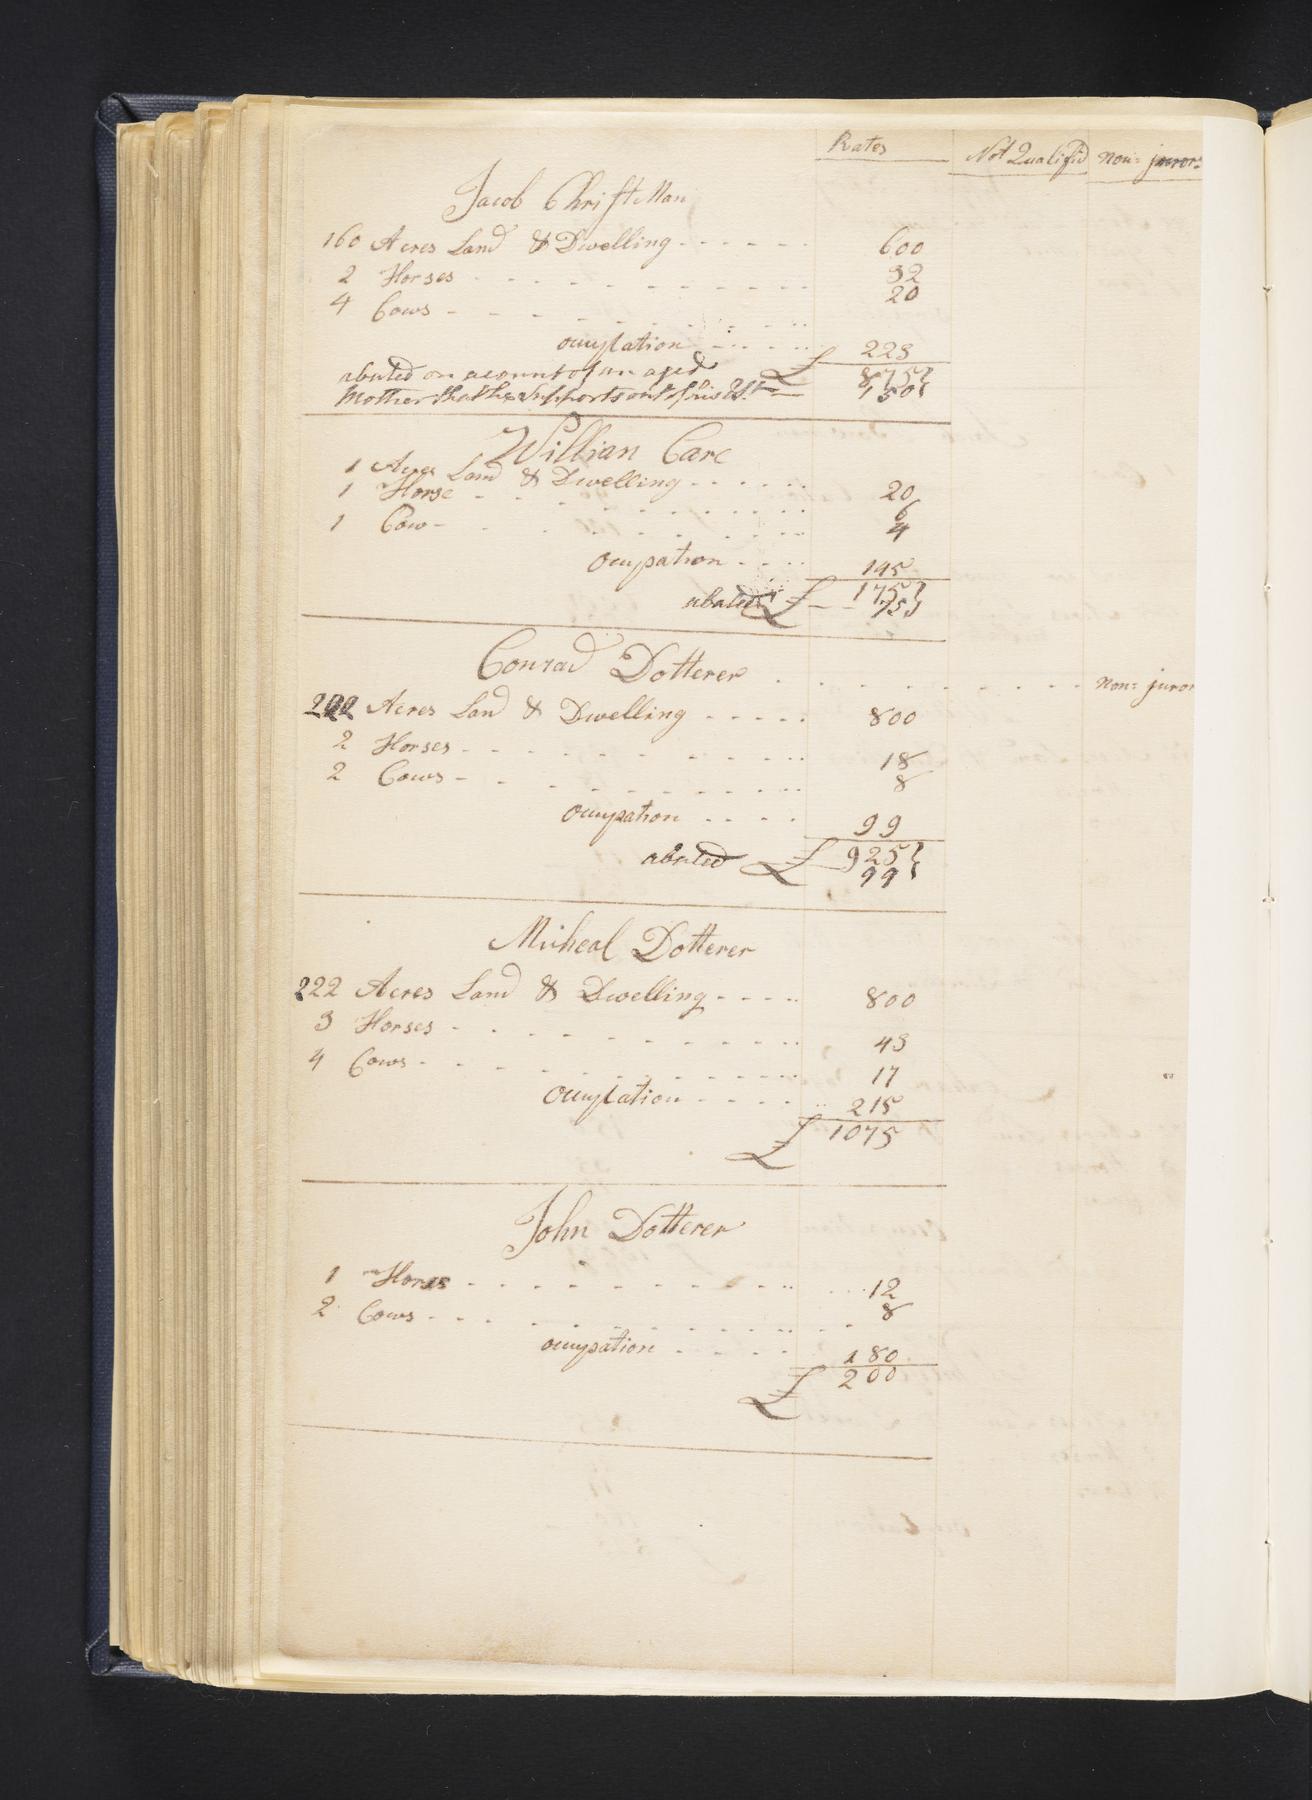 Rates Not Qualifid non= jurors
Jacob Christ Man
160 Acres Land & Dwelling - - - - - - 600
2 Horses - - - - - - - - - 32
4 Cows - - - - - - - - - 20
ocupation - - - - 223
£ 875
abated on acount of an aged
Mother that he Supports out of his Est 150
William Care
1 Acres Land & Dwelling - - - - - - 20
1 Horse - - - - - - - - - 6
1 Cow - - - - - - - - 4
Ocupation - - - - 145
£ 175
abated 75
Conrad Dotterer - - - - - - - - - - non= juror
222 Acres Land & Dwelling - - - - - 800
2 Horses - - - - - - - - - 18
2 Cows - - - - - - - - - 8
Ocupation - - - - 99
£ 925
abated 99
Micheal Dotterer
222 Acres Land & Dwelling - - - - - 800
3 Horses - - - - - - - - - 43
4 Cows - - - - - - - - - 17
Ocupation - - - - - 215
£ 1075
John Dotterer
1 Horse - - - - - - - - - - 12
2 Cows - - - - - - - - - - 8
ocupation - - - - 180
£ 200